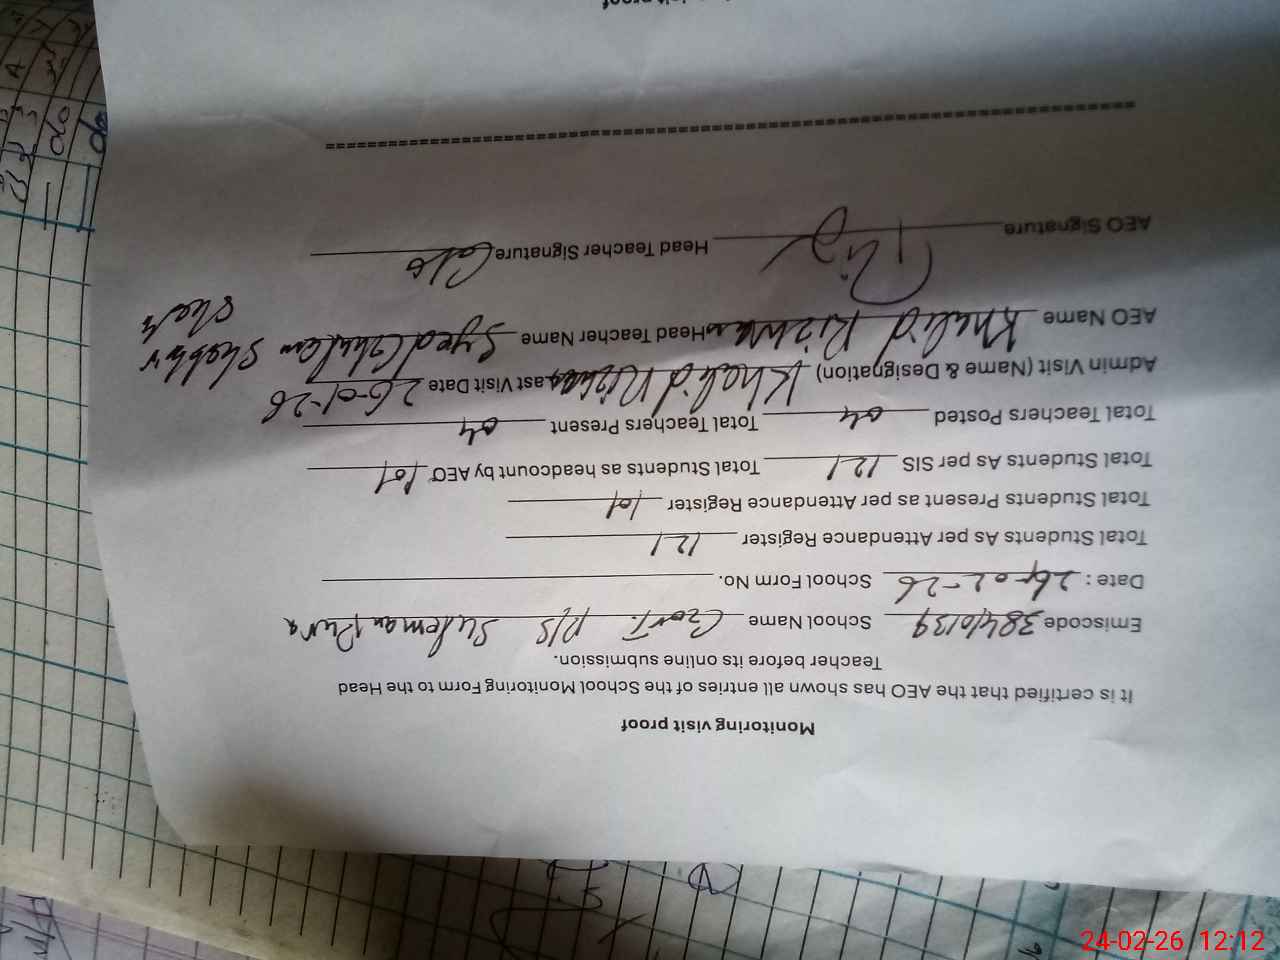 Monitoring visit proof
It is certified that the AEO has shown all entries of the School Monitoring Form to the Head
Teacher before its online submission.
Emiscode 38410139 School Name Govt. P/S Suleman Pura
Date : 24-02-26 School Form No.
Total Students As per Attendance Register 121
Total Students Present as per Attendance Register 101
Total Students As per SIS 121 Total Students as headcount by AEO 101
Total Teachers Posted 04 Total Teachers Present 04
Admin Visit (Name & Designation) Khalid Rizwan Last Visit Date 26-01-26
AEO Name Khalid Rizwan Head Teacher Name Syed Ghulam Shabbir
Shah
AEO Signature Head Teacher Signature
24-02-26 12:12